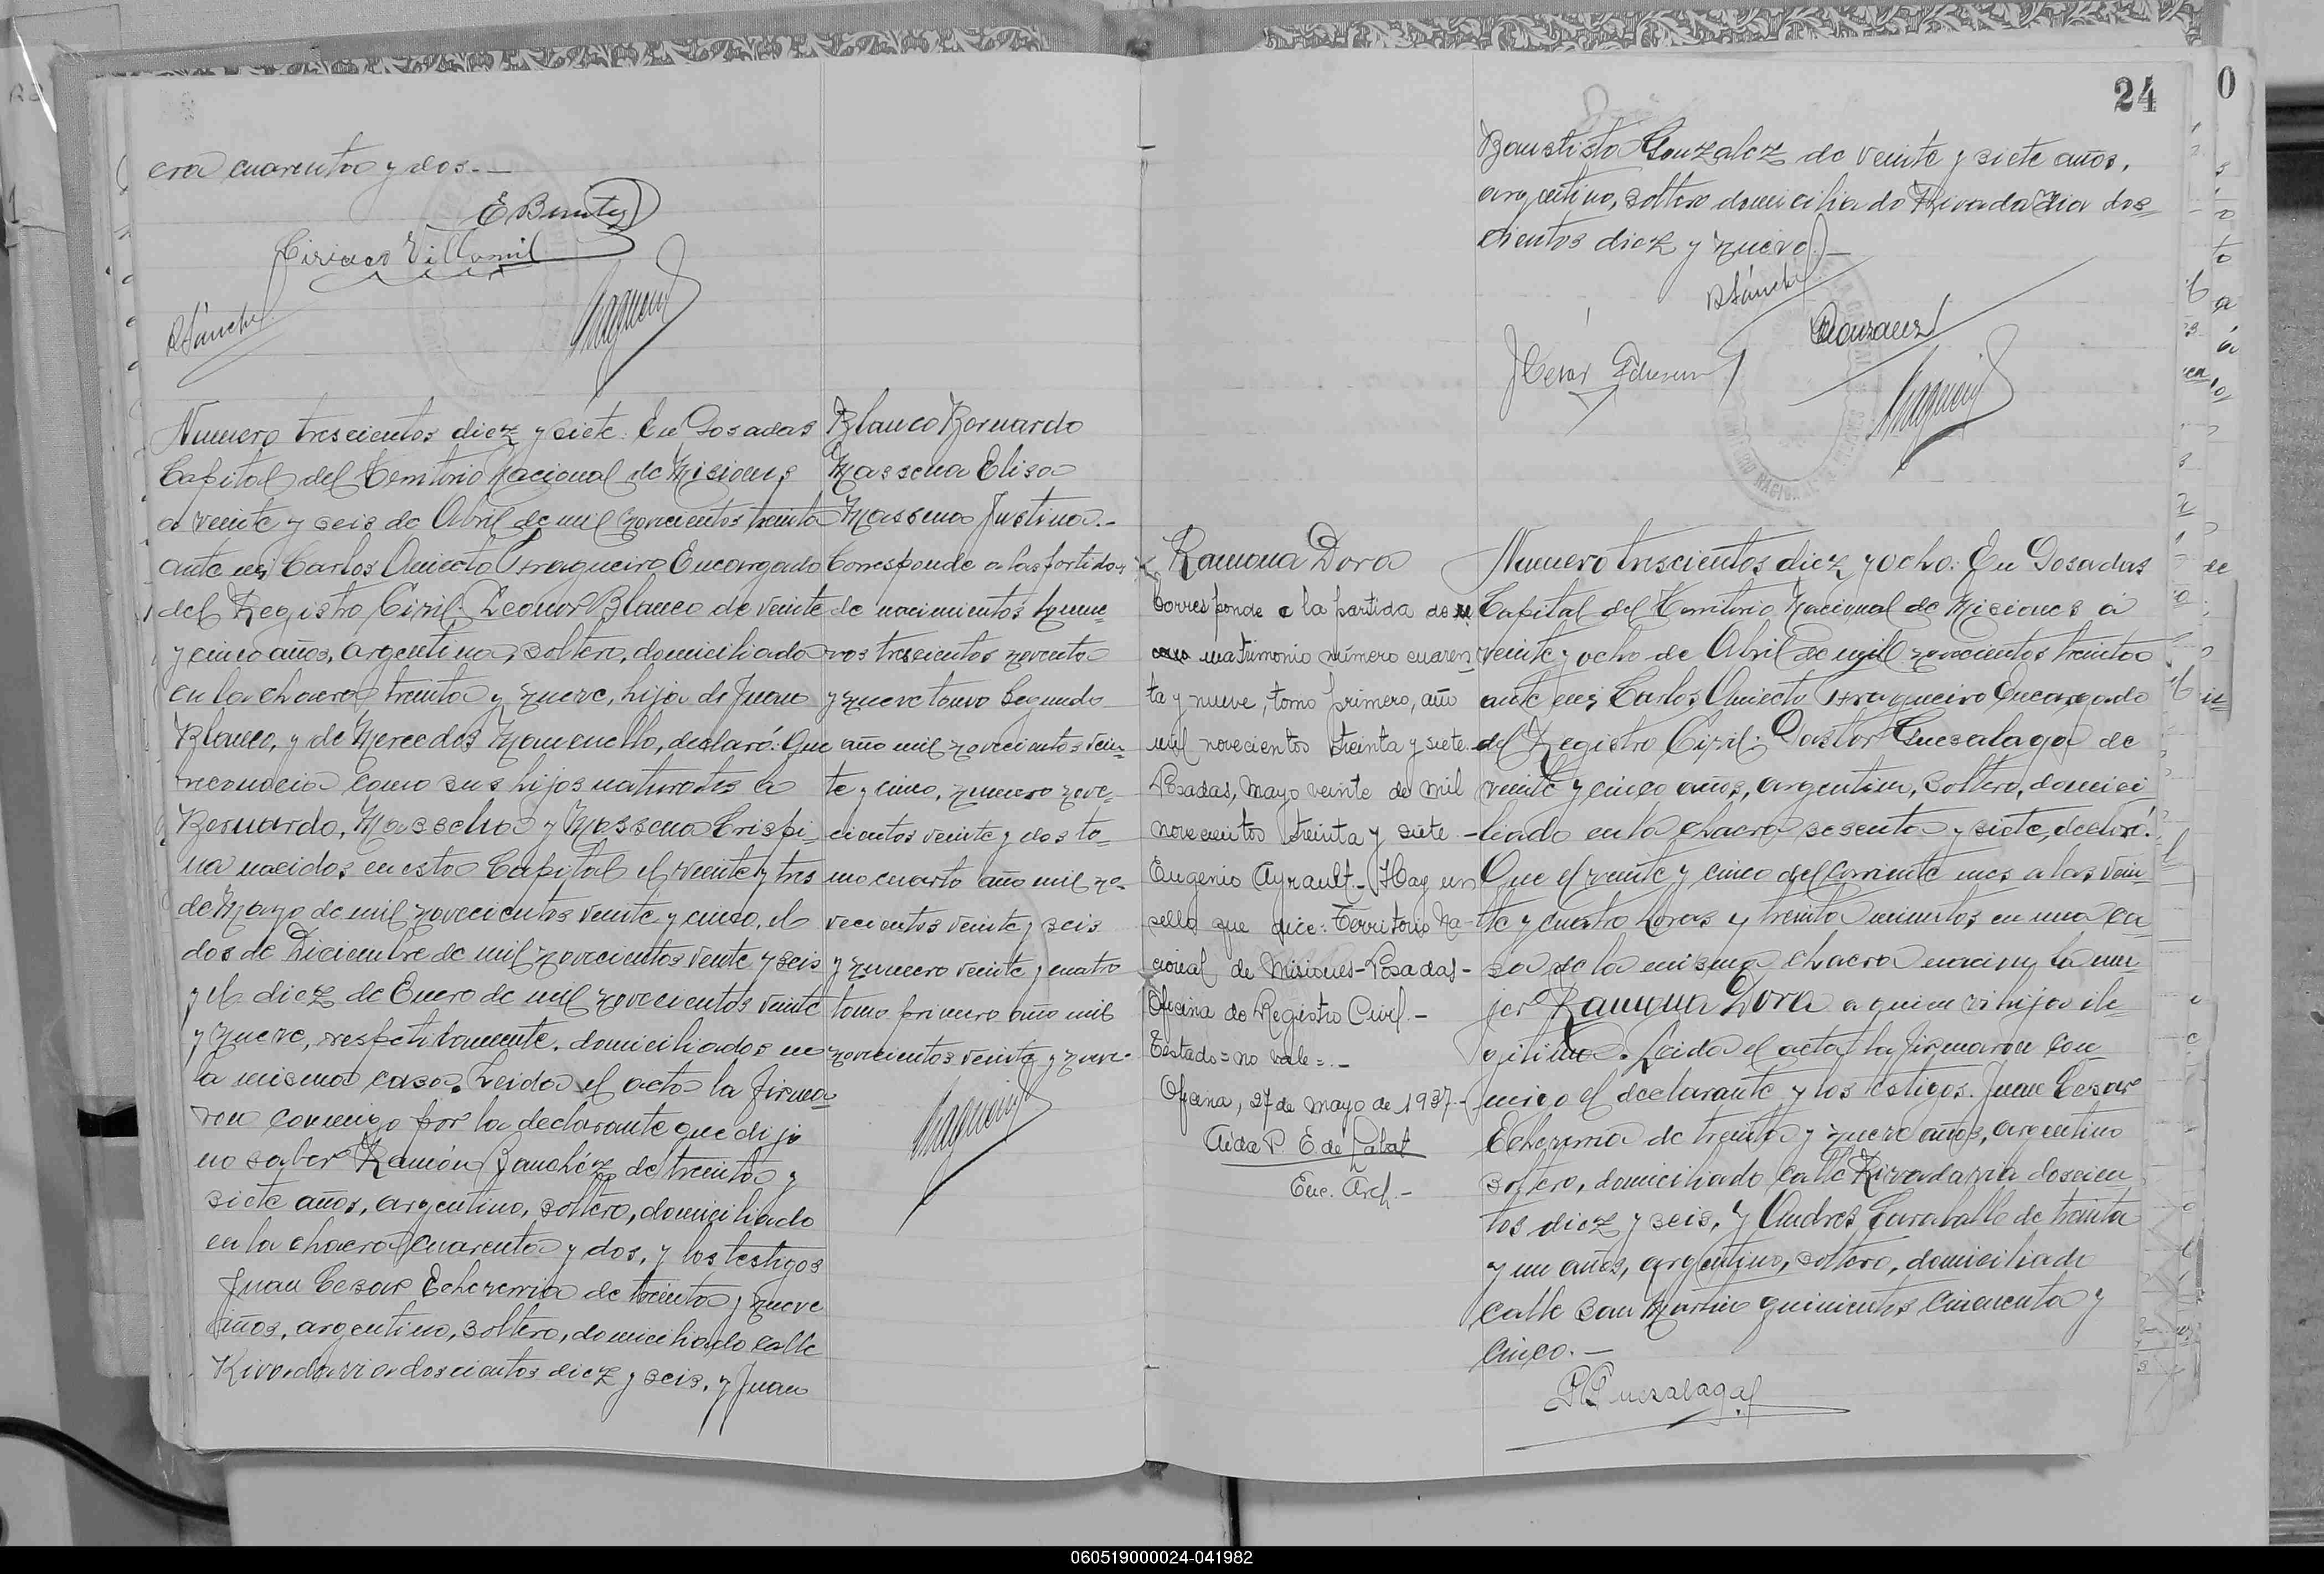 era cuarenta y dos.-
E Benitez
Ciriaco Villamil
RSánchez
Numero trescientos diez y siete. En Posadas
Capital del Territorio Nacional de Misiones
a veinte y seis de Abril de mil novecientos treinta
ante mi Carlos Aniceto Fragueiro Encargado
del Registro Civil: Leonor Blanco de veinte
y cinco años, argentina, soltera, domiciliada
en la chacra treinta y nueve, hija de Juan
Blanco, y de Mercedes, declaró: Que
reconocia como sus hijos naturales a
Bernardo, Massena y Massena Crispi-
na nacidos en esta Capital el veinte y tres
de Mayo de mil novecientos veinte y cinco, el
dos de Diciembre de mil novecientos veinte y seis
y el diez de Enero de mil novecientos veinte
y nueve, respetivamente, domiciliados en
la misma casa. Leida el acta la firma-
ron conmigo por la declarante que dijo
no saber Ramón Sanchéz de treinta y
siete años, argentino, soltero, domiciliado
en la chacra cuarenta y dos, y los testigos
Juan Cesar Echeverria de treinta y nueve
años, argentino, soltero, domiciliado calle
Rivadavia doscientos diez y seis, y Juan
Blanco Bernardo
Massena Elisa
Massena Justina.-
Corresponde a las partidas
de nacimientos nume-
ros trescientos noventa
y nueve tomo segundo
año mil novecientos vein-
te y cinco, numero nove-
cientos veinte y dos to-
mo cuarto año mil no-
vecientos veinte y seis
y numero veinte y cuatro
tomo primero año mil
novecientos veinte y nueve.
24
Baustista Gonzalez de veinte y siete años,
argentino, soltero domiciliado Rivadavia dos-
cientos diez y nueve.-
RSánchez
Gonzalez
JCesar Echeverria
Ramona Dora
Corresponde a la partida de
matrimonio número cuaren
ta y nueve, tomo primero, año
mil novecientos treinta y siete.-
Posadas, Mayo veinte de mil
novecientos treinta y siete -
Eugenio Ayrault.- (Hay un
sello que dice: Territorio Na-
cional de Misiones-Posadas-
Oficina de Registro Civil.-
Testado=no vale=.-
Oficina, 27 de mayo de 1937-
Aida P. E. de Labat
Enc. Arch.-
Numero trescientos diez y ocho: En Posadas
Capital del Territorio Nacional de Misiones á
veinte y ocho de Abril de mil novecientos treinta
ante mi Carlos Aniceto Fragueiro Encargado
del Registro Civil: Pastor Guesalaga de
veinte y cinco años, argentino, soltero, domici
liado en la chacra sesenta y siete, declaró:
Que el veinte y cinco del corriente mes a las vein
te y cuatro horas y treinta minutos, en una ca
sa de la misma chacra nacio la mu
jer Ramona Dora a quien vi hija ile
gitima. Leida el acta la firmaron con
migo el declarante y los testigos. Juan Cesar
Echeverria de treinta y nueve años, argentino
soltero, domiciliado calle Rivadavia doscien
tos diez y seis, y Andres Caraballo de treinta
y un años, argentino, soltero, domiciliado
calle San Martin quinientos cincuenta y
cinco.-
PGuesalaga
060519000024-041982